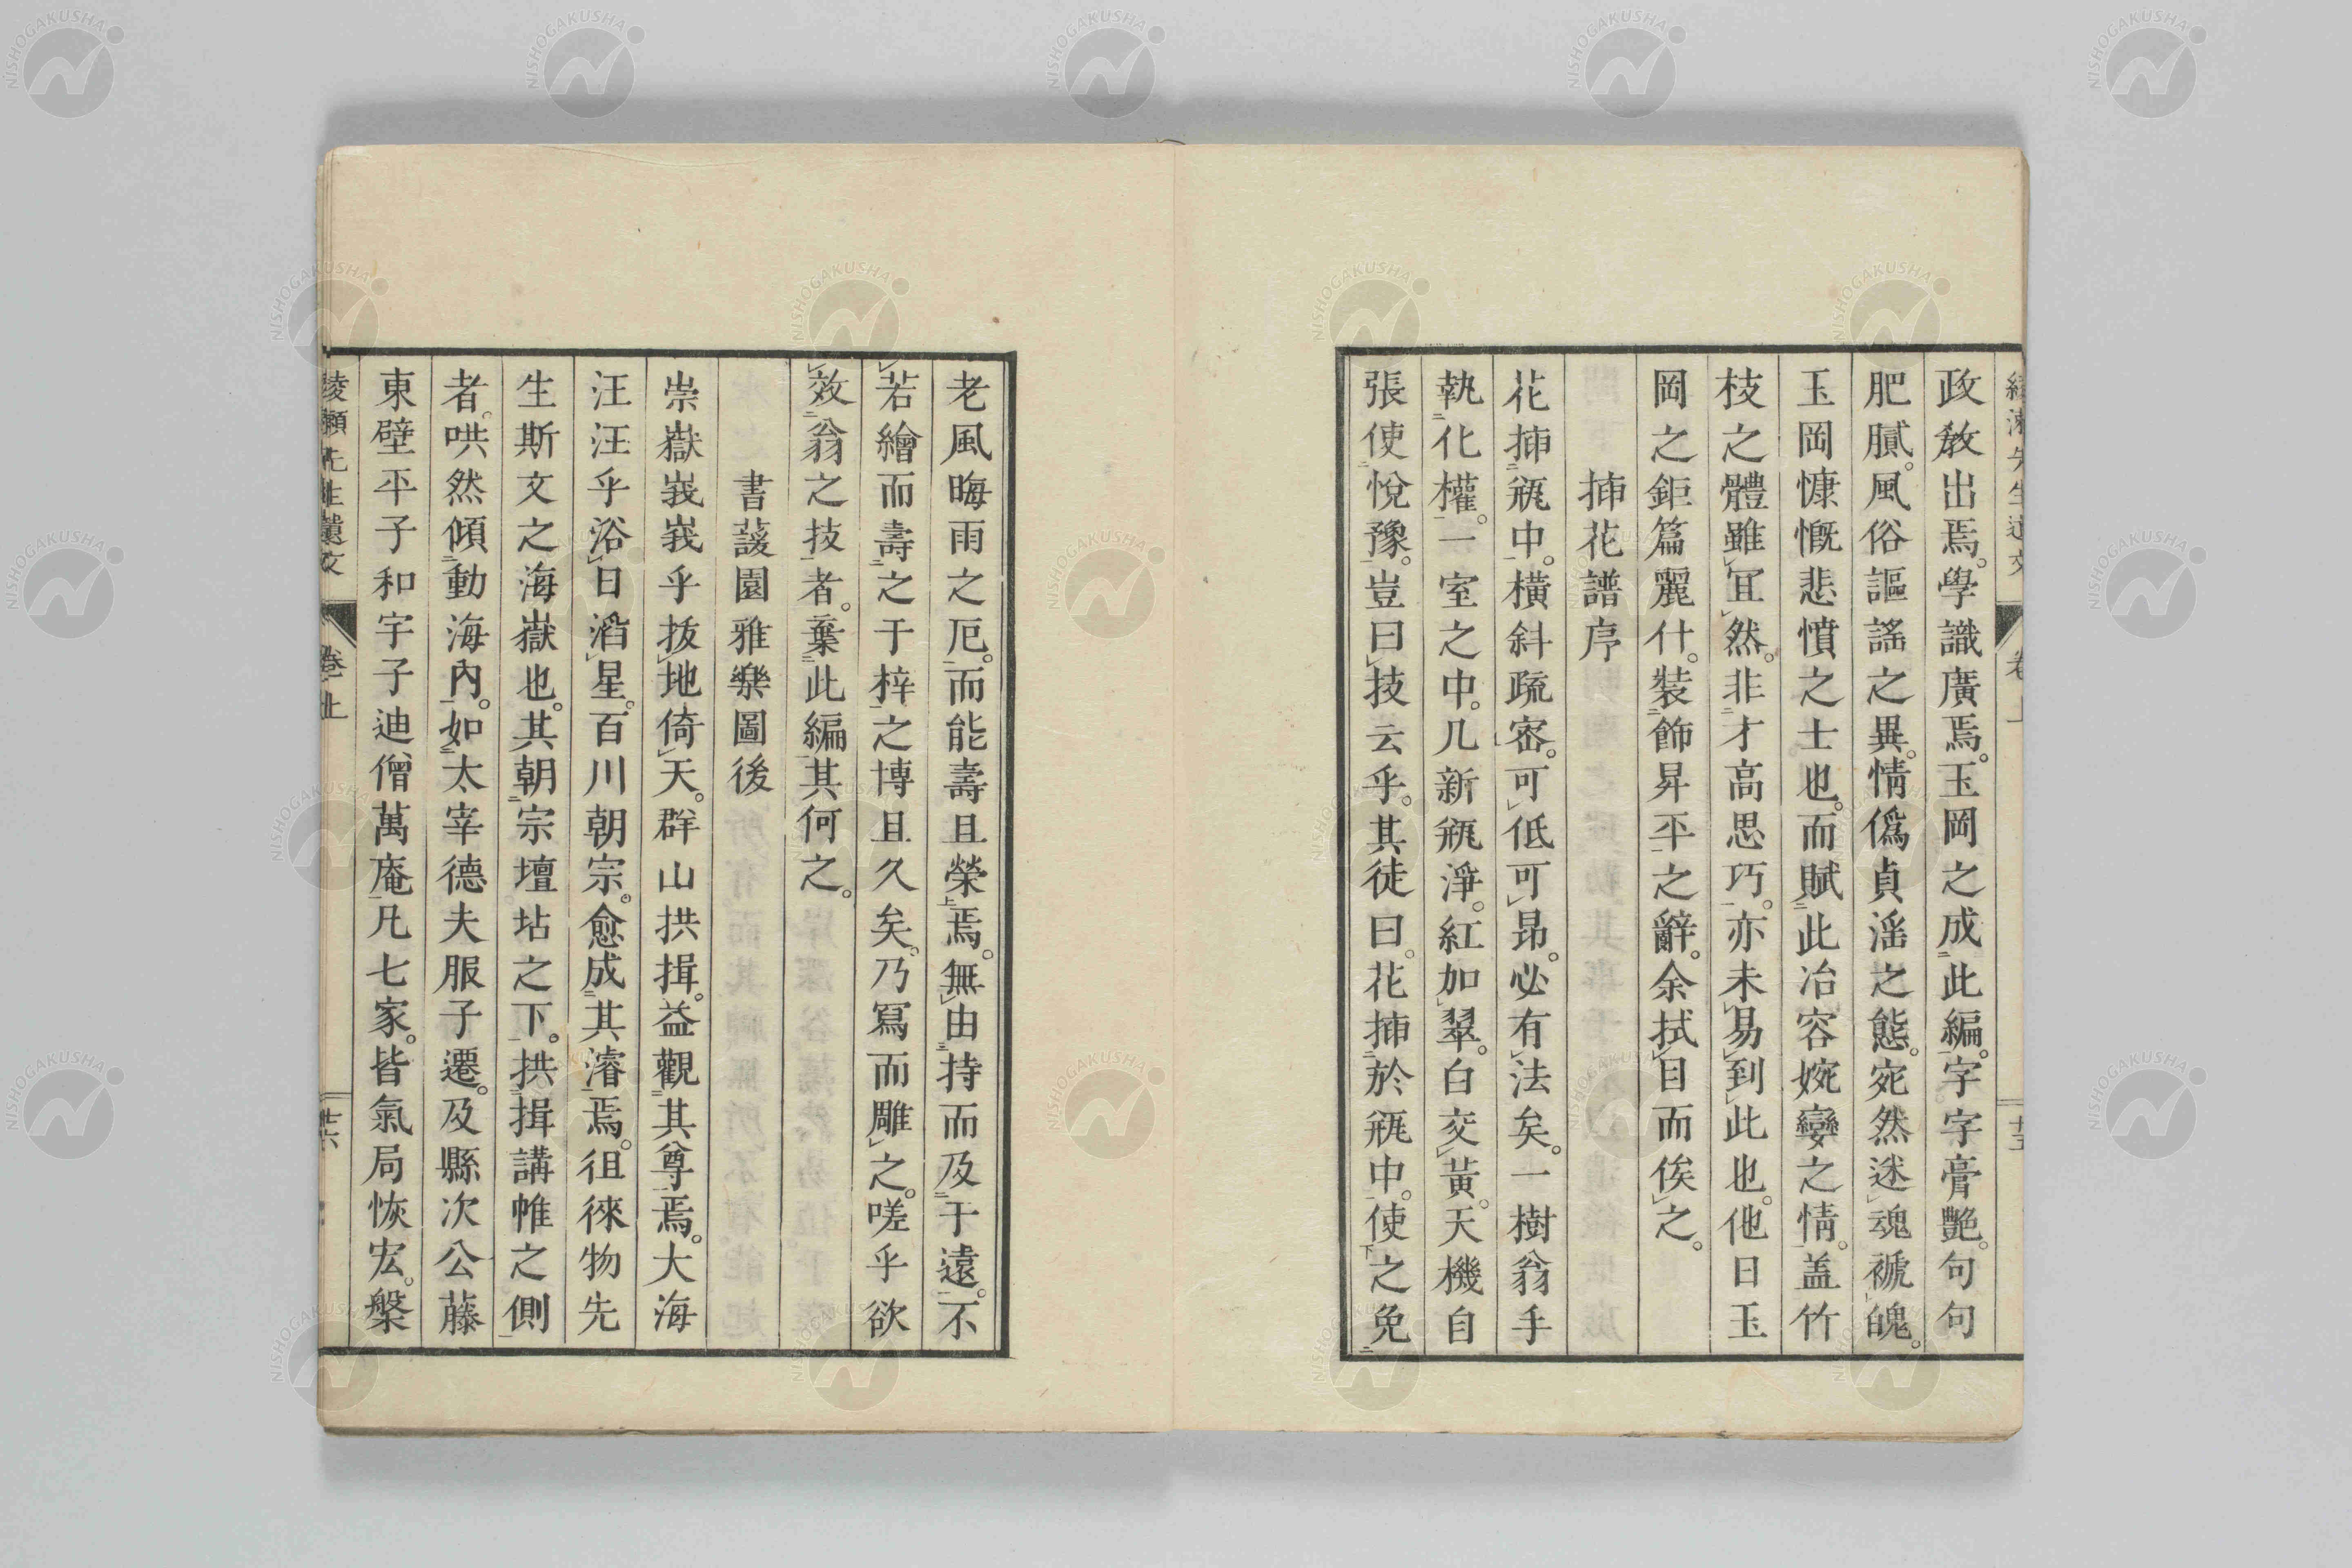 政教出焉。學識廣焉。玉岡之成此編。字字膏艶。句句
肥膩。風俗謳謠之異。情僞貞滛之態。宛然迷魂褫魄。
玉岡慷慨悲憤之士也。而賦此冶容婉孌之情。盖竹
枝之體雖冝然。非才高思巧。亦未易到此也。他日玉
岡之鉅篇麗什。裝飾昇平之辭。余拭目而俟之。
揷花譜序
花揷瓶中。橫斜疏密。可低可昻。必有法矣。一樹翁手
執化權。一室之中。几新瓶淨。紅加翠。白交黃。天機自
張使悅豫。豈曰技云乎。其徒曰。花揷於瓶中。使之免
老風晦雨之厄。而能壽且榮焉。無由持而及于遠。不
若繪而壽之于梓之博且久矣。乃寫而雕之。嗟乎欲
效翁之技者。棄此編其何之。
書蘐園雅樂圖後
崇嶽峩峩乎拔地倚天。群山拱揖。益觀其尊焉。大海
汪汪乎浴日滔星。百川朝宗。愈成其濬焉。徂徠物先
生斯文之海嶽也。其朝宗壇坫之下。拱揖講帷之側
者。哄然傾動海內。如太宰德夫服子遷。及縣次公藤
東壁平子和宇子迪僧萬庵凡七家。皆氣局恢宏。槃
綾瀬先生遺文 卷上